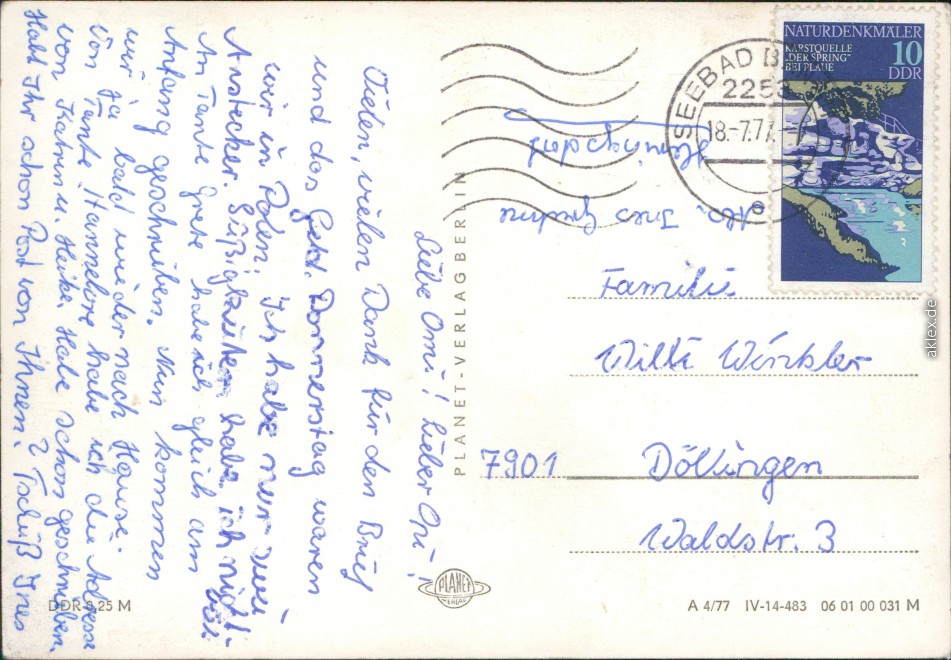 Liebe Omi! Lieber Opi!
Vielen, vielen Dank für den Brief
und das Geld. Donnerstag waren
wir in Polen. Ich habe nur zwei
Anstecker. Süßigkeiten habe ich nicht.
An Tante Grete habe ich gleich am
Anfang geschrieben. Nun kommen
wir ja bald wieder nach Hause.
Von Tante Hannelore habe ich die Adresse
von Katrin u. Heike. Habe schon geschrieben.
Habt Ihr schon Post von Ihnen? Tschüß Ines
Abs. Ines
NATURDENKMÄLER
KARSTQUELLE
„DER SPRING“
BEI PLAUE
10
DDR
SEEBAD B
2253
18.-7.77
e
PLANET-VERLAG BERLIN
Familie
Willi Winkler
7901 Döllingen
Waldstr. 3
PLANET
VERLAG
DDR 0,25 M
A 4/77 IV-14-483 06 01 00 031 M
aklex.de